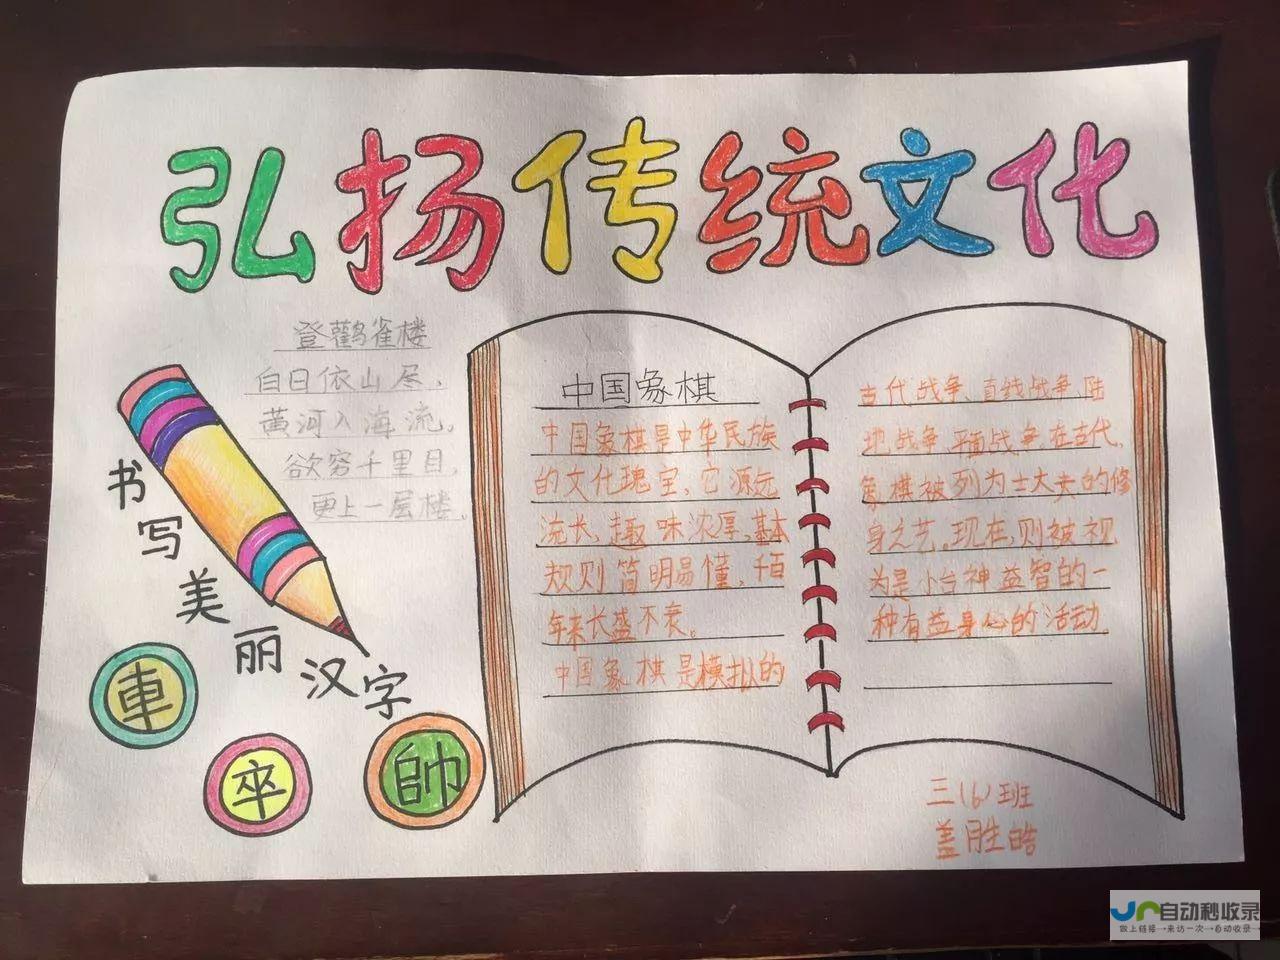 弘扬传统文化
登鹳雀楼
白日依山尽，
黄河入海流。
欲穷千里目，
更上一层楼。
书写美丽汉字
車
卒
帥
中国象棋
中国象棋是中华民族
的文化瑰宝，它源远
流长，趣味浓厚，基本
规则简明易懂，千百
年来长盛不衰。
中国象棋是模拟的
古代战争、直线战争、陆
地战争、平面战争在古代，
象棋被列为士大夫的修
身之艺。现在，则被视
为是怡神益智的一
种有益身心的活动
三(6)班
盖胜皓
自动秒收录
做上链接→来访一次→自动收录→